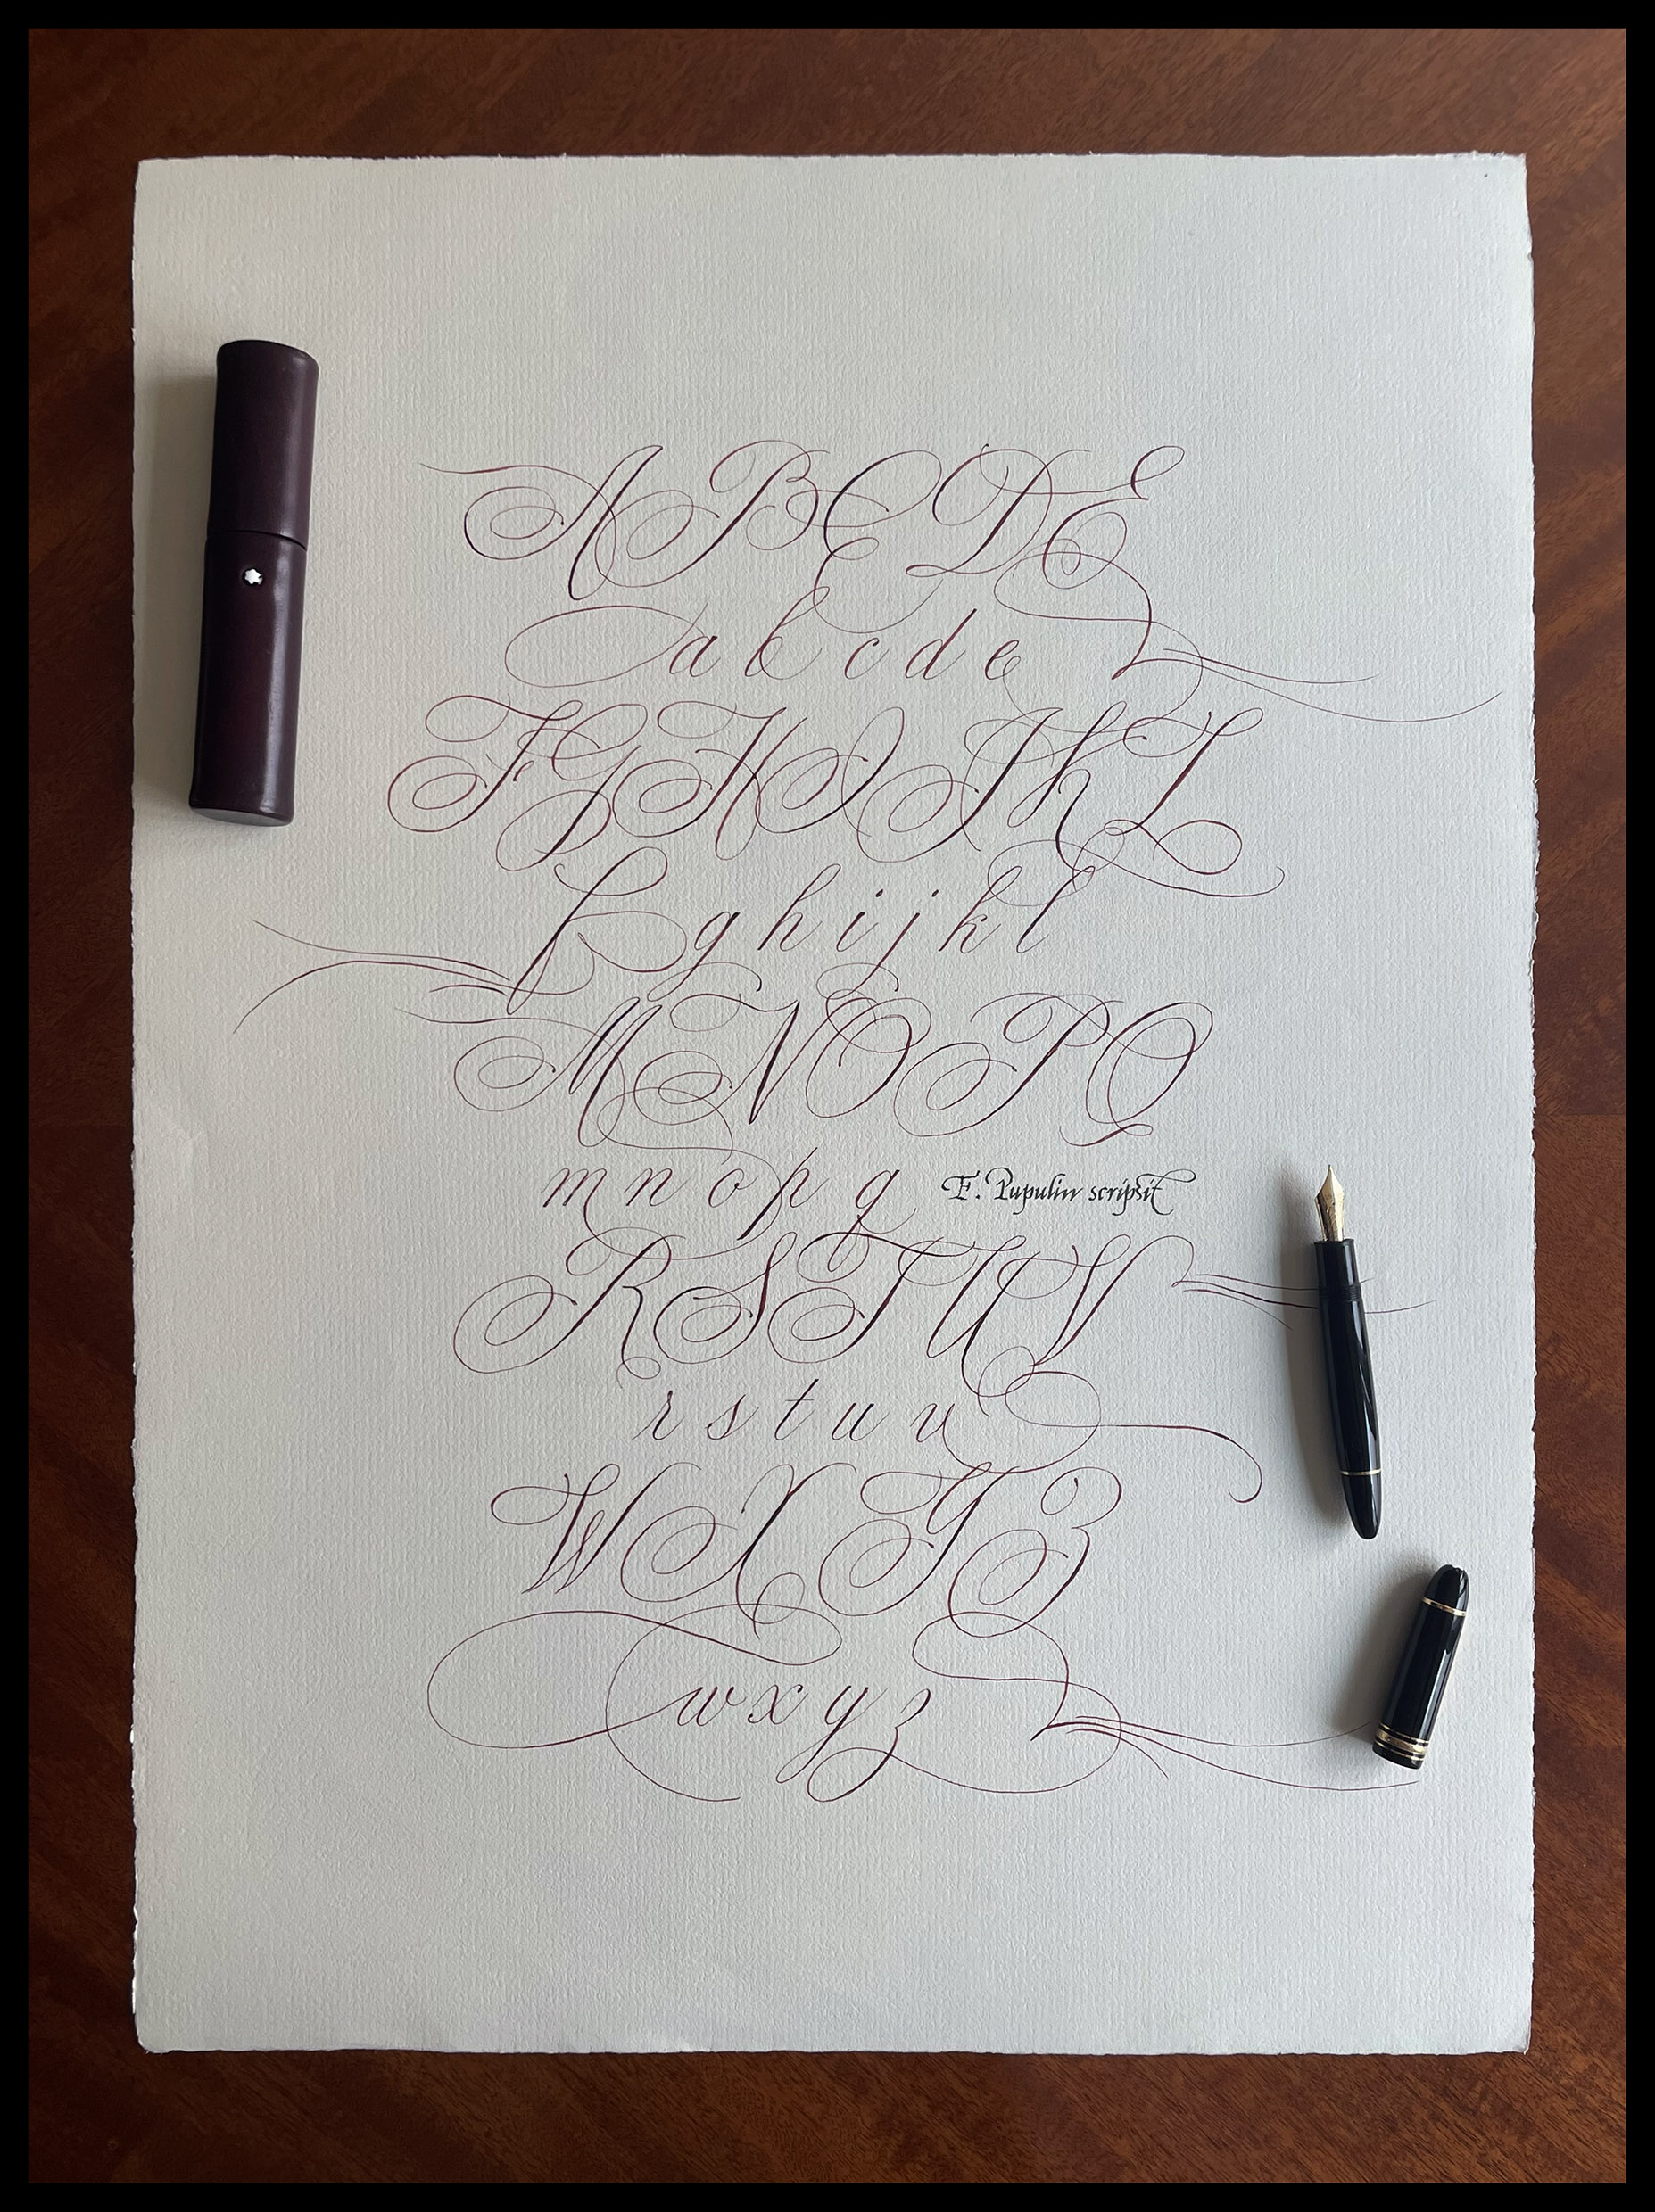 A B C D E
a b c d e
F G H I J K L
f g h i j k l
M N O P Q
m n o p q F. Pupulin scripsit
R S T U V
r s t u v
W X Y Z
w x y z